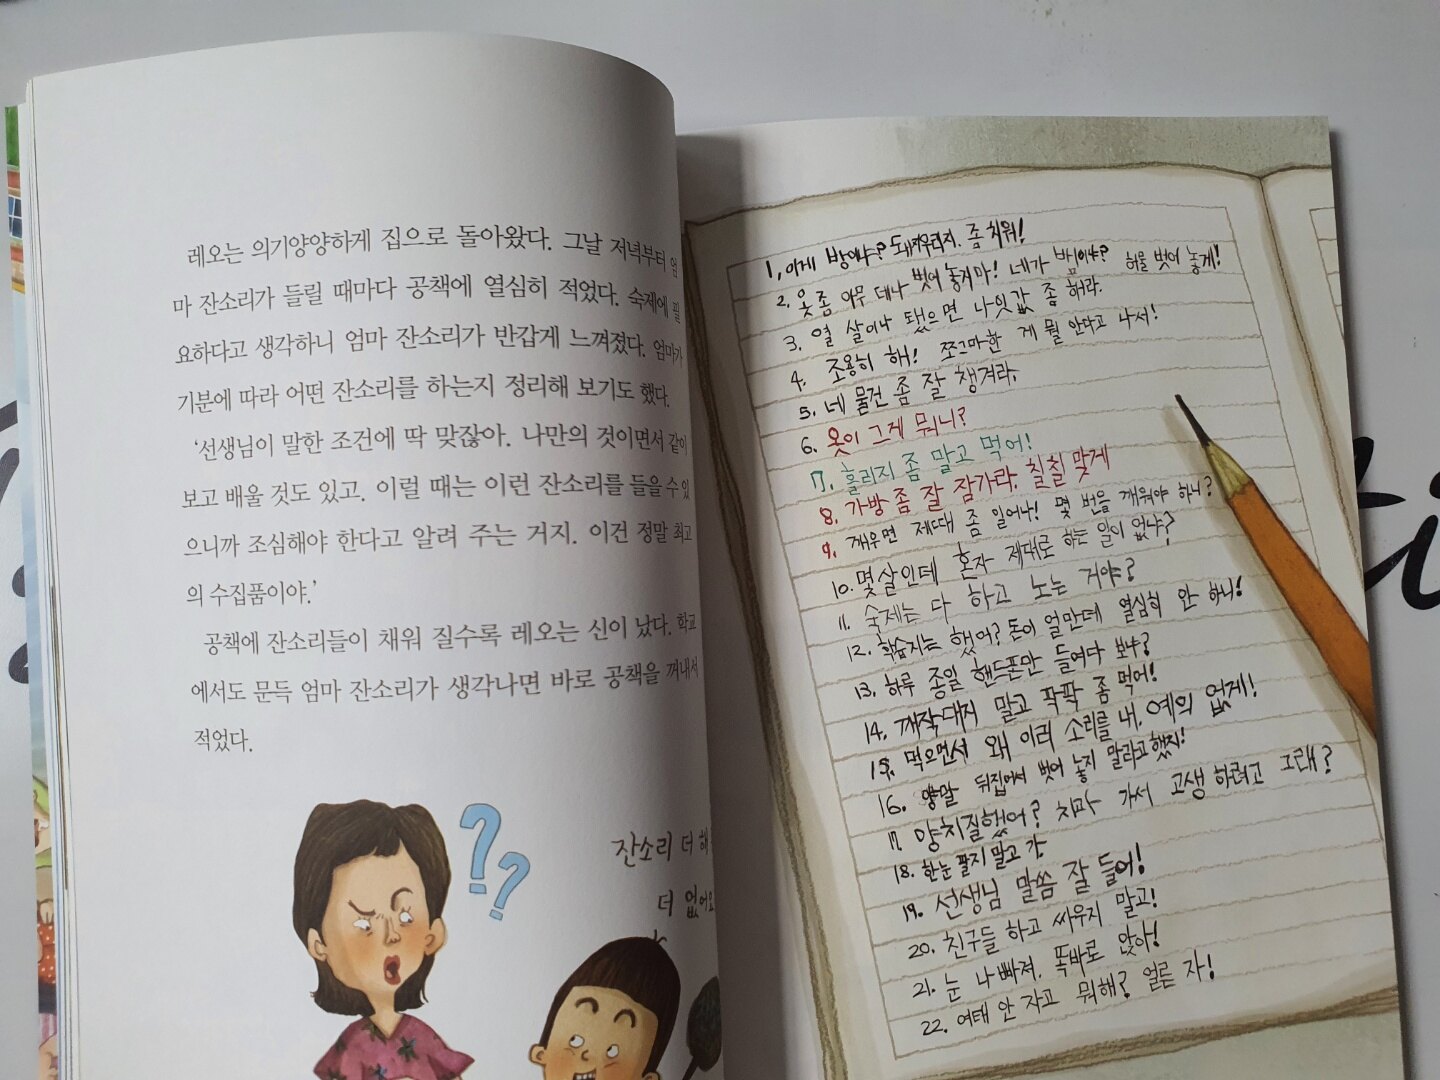 레오는 의기양양하게 집으로 돌아왔다. 그날 저녁부터 엄
마 잔소리가 들릴 때마다 공책에 열심히 적었다. 숙제에 필
요하다고 생각하니 엄마 잔소리가 반갑게 느껴졌다. 엄마가
기분에 따라 어떤 잔소리를 하는지 정리해 보기도 했다.
‘선생님이 말한 조건에 딱 맞잖아. 나만의 것이면서 같이
보고 배울 것도 있고. 이럴 때는 이런 잔소리를 들을 수 있
으니까 조심해야 한다고 알려 주는 거지. 이건 정말 최고
의 수집품이야.’
공책에 잔소리들이 채워 질수록 레오는 신이 났다. 학교
에서도 문득 엄마 잔소리가 생각나면 바로 공책을 꺼내서
적었다.
잔소리 더 해
더 없어요
1, 이게 방이야? 돼지우리지. 좀 치워!
2. 옷 좀 아무 데나 벗어 놓지마! 네가 뱀이야? 허물 벗어 놓게!
3. 열 살이나 됐으면 나잇값 좀 해라.
4. 조용히 해! 쪼그마한 게 뭘 안다고 나서!
5. 네 물건 좀 잘 챙겨라.
6. 옷이 그게 뭐니?
7. 흘리지 좀 말고 먹어!
8. 가방 좀 잘 잠가라. 칠칠 맞게
9. 깨우면 제때 좀 일어나! 몇 번을 깨워야 하니?
10. 몇살인데 혼자 제대로 하는 일이 없냐?
11. 숙제는 다 하고 노는 거야?
12. 학습지는 했어? 돈이 얼만데 열심히 안 하니!
13. 하루 종일 핸드폰만 들여다 보냐?
14. 깨작대지 말고 팍팍 좀 먹어!
15. 먹으면서 왜 이래 소리를 내. 예의 없게!
16. 양말 뒤집어서 벗어 놓지 말라고 했지!
17. 양치질했어? 치과 가서 고생하려고 그래?
18. 한눈 팔지 말고 가.
19. 선생님 말씀 잘 들어!
20. 친구들 하고 싸우지 말고!
21. 눈 나빠져. 똑바로 앉아!
22. 여태 안 자고 뭐해? 얼른 자!